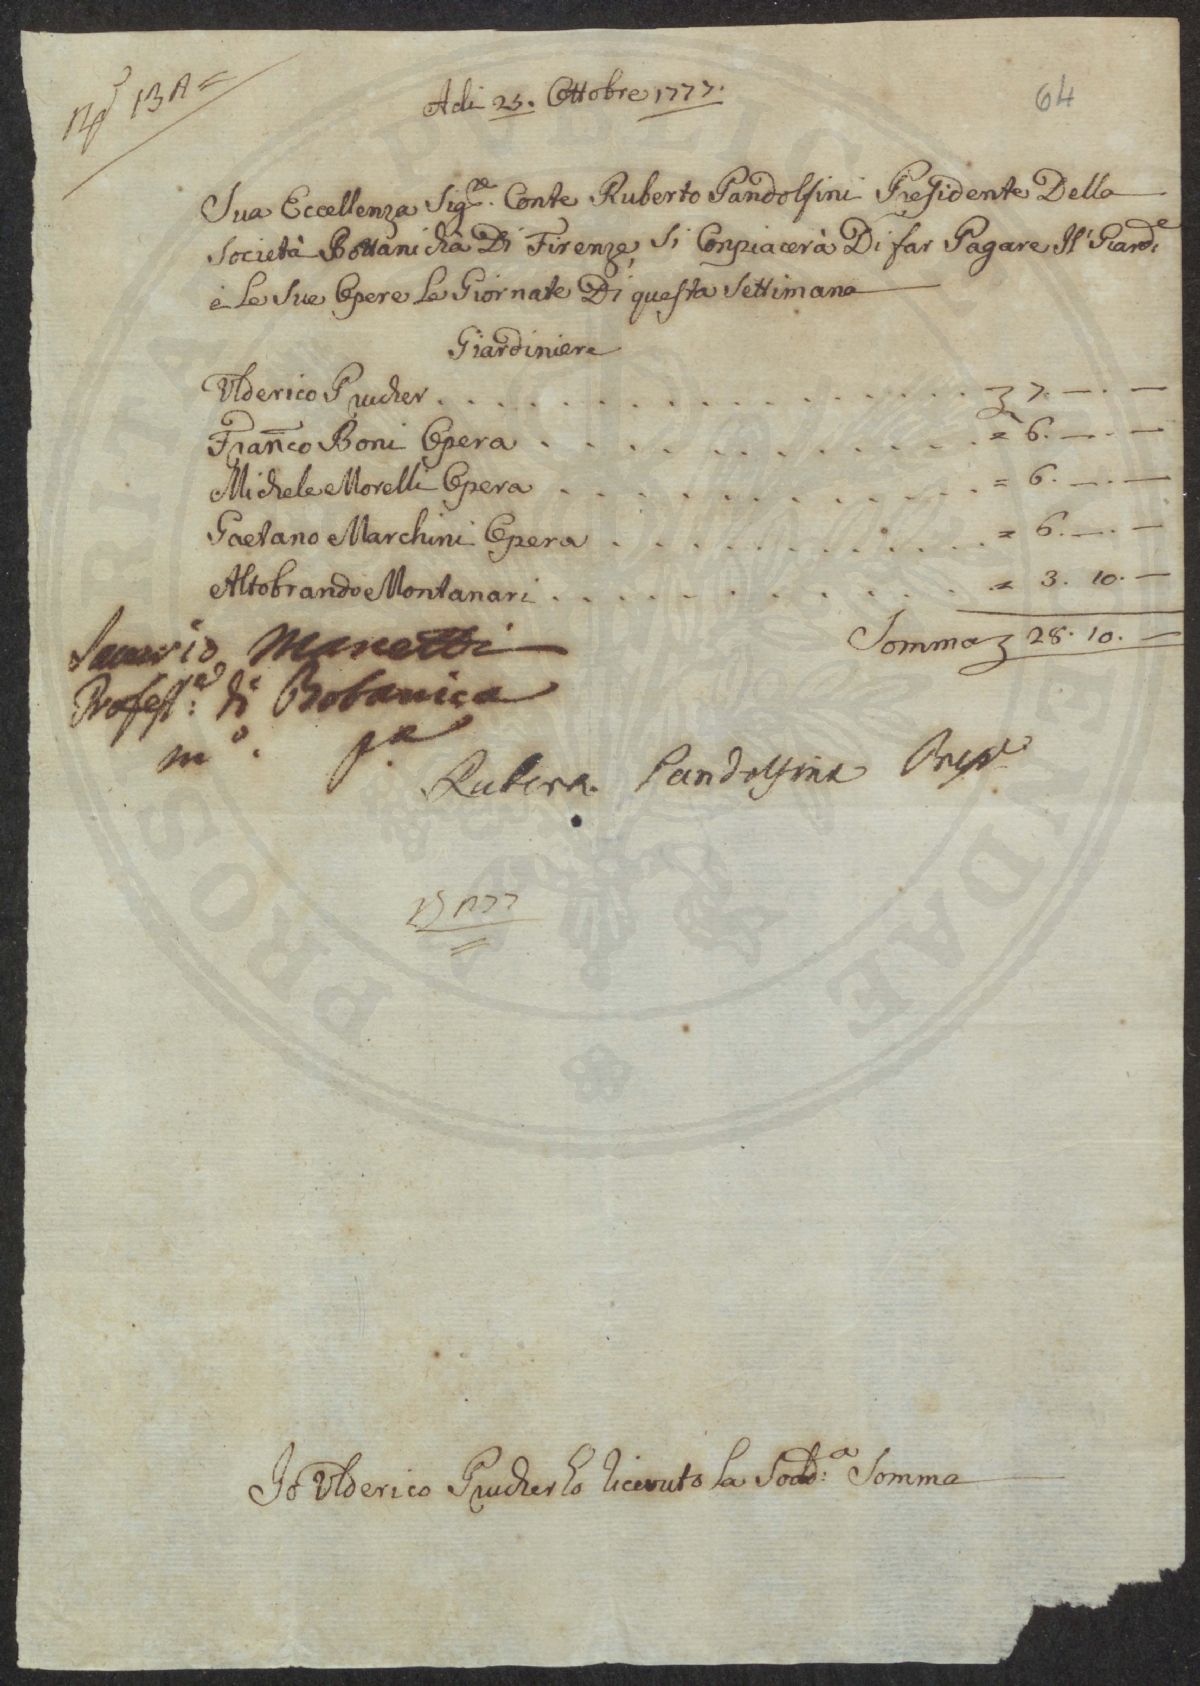 13 A =
Adi 25. Ottobre 1777.
64
Sua Eccellenza Sig.re Conte Ruberto Pandolfini Presidente Della
Società Bottanicha Di Firenze, Si Conpiacerà Di far Pagare Il Giard.e
e Le Sue Opere Le Giornate Di questa Settimana
Giardiniere
Ulderico Prucher . . . . . . . . . . 7. — . —
Franco Boni Opera . . . . . . . . . . = 6. — . —
Michele Morelli Opera . . . . . . . . . . = 6. — . —
Gaetano Marchini Opera . . . . . . . . . . = 6. — . —
Altobrando Montanari . . . . . . . . . . = 3. 10. —
Somma 28. 10. —
Saverio Manetti
Profess.e di Botanica
m.o p.a
Ruberto Pandolfini Pres.e
1777
Io Ulderico Prucher ho ricevuto la Sodd.a Somma
PUBLICAE
PROSPERITATI